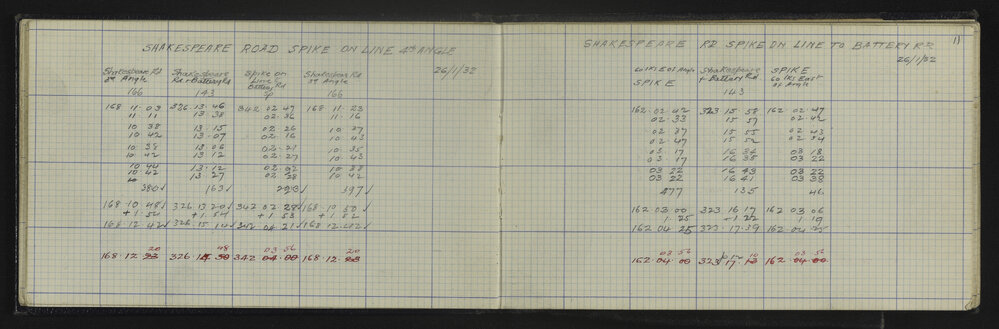 SHAKESPEARE ROAD SPIKE ON LINE 4th ANGLE
26/1/32
Shakespeare Rd Shakespeare Spike on Shakespeare Rd
Angle Rd + Battery Rd Line Angle
Battery Rd
166 143 166
168 11 03 326.13.46 342 02 47 168 11 23
11.11 13 38 02.36 11.16
10 38 13.15 02 26 10 37
10 42 13.07 02 16 10 43
10 38 13 06 02.21 10 35
10 42 13 12 02.27 10 43
10 44 13.12 10 38
10.42 13 27 10 42
380 163 223 397
168.10.48 326.13 20 342 02 28 168.10 50
+1.54 +1.54 +1.53 +1.52
168.12.42 326.15.14 342 04 21 168.12.42
20 48 03 56 20
168.12 326.1 342 168.12.
SHAKESPEARE RD SPIKE ON LINE TO BATTERY RD
11
26/1/32
60 lks E of Angle Shakespeare SPIKE
SPIKE + Battery Rd 60 lks East
of Angle
143
162.02.42 323 15.58 162 02.47
02.33 15 57 02 42
02 37 15 55 02 43
02 47 15 52 02 54
03.17 16 36 03 18
03.17 16 38 03 22
03 22 16 43 03 22
03 22 16 41 03 38
477 135 46
162.03.00 323 16 17 162 03.06
1.25 +1 22 1 19
162 04 25 323.17.39 162.04 25
03 56 16 03 56
162.04.00 323 17 162